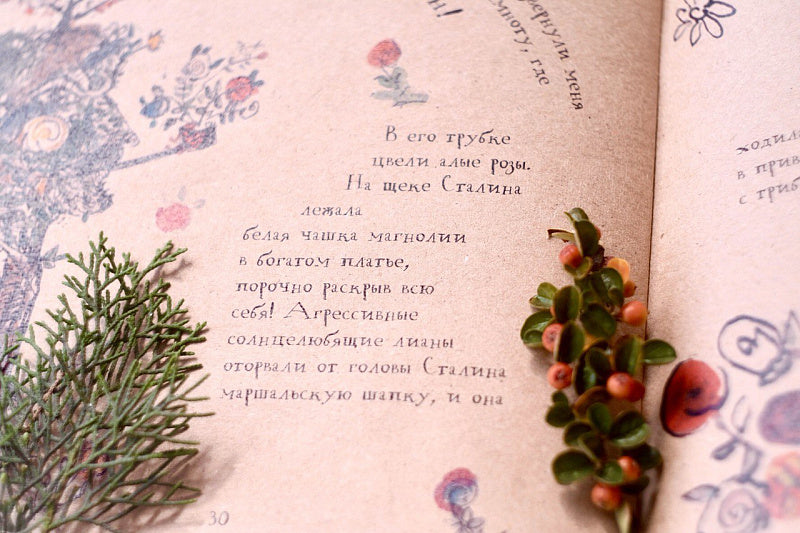 н!
вернули меня
мноту, где
В его трубке
цвели алые розы.
На щеке Сталина
лежала
белая чашка магнолии
в богатом платье,
порочно раскрыв всю
себя! Агрессивные
солнцелюбящие лианы
оторвали от головы Сталина
маршальскую шапку, и она
30
ходил
в прив
с гриб